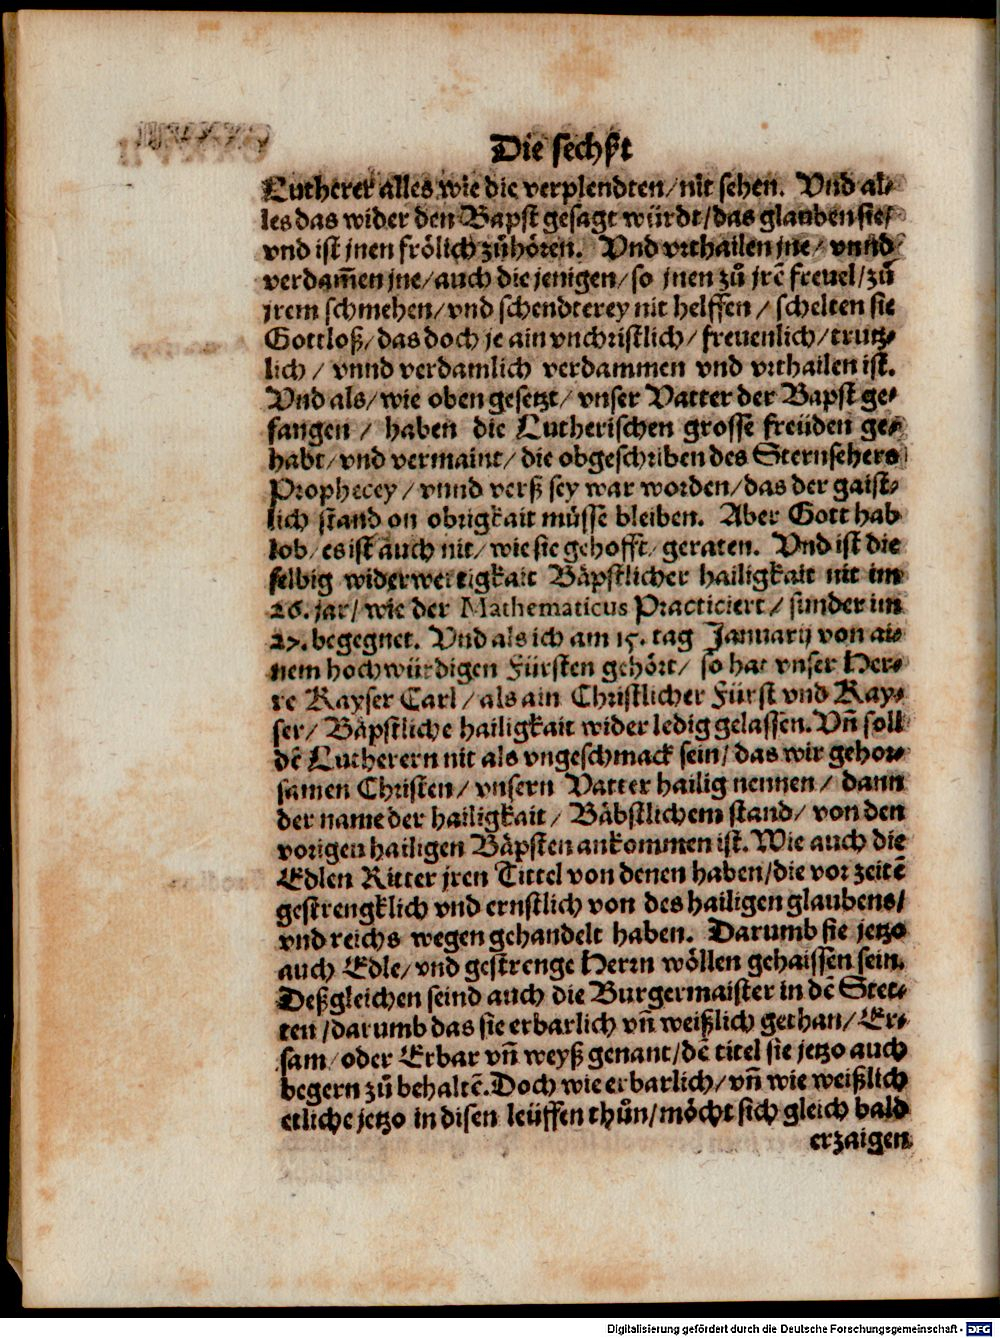 Die sechst
Lutherer alles wie die verplendten/nit sehen. Vnd al⸗
les das wider den Bapst gesagt würdt/das glauben sie/
vnd ist jnen frölich zůhören. Vnd vrthailen jne/vnnd
verdam̃en jne/auch die jenigen/so jnen zů jrẽ freuel/zů
jrem schmehen/vnd schendterey nit helffen/schelten sie
Gottloß/das doch je ain vnchristlich/freuenlich/trutz⸗
lich/vnnd verdamlich verdammen vnd vrthailen ist.
Vnd als/wie oben gesetzt/vnser Vatter der Bapst ge⸗
fangen/haben die Lutherischen grosse freüden ge⸗
habt/vnd vermaint/die obgeschriben des Sternsehers
Prophecey/vnnd verß sey war worden/das der gaist⸗
lich stand on obrigkait müsse bleiben. Aber Gott hab
lob/es ist auch nit/wie sie gehofft/geraten. Vnd ist die
selbig widerwertigkait Bäpstlicher hailigkait nit im
26. jar/wie der Mathematicus Practiciert/sunder im
27. begegnet. Vnd als ich am 15. tag Januarij von ai⸗
nem hochwürdigen Fürsten gehört/so hat vnser Her⸗
re Kayser Carl/als ain Christlicher Fürst vnd Kay⸗
ser/Bäpstliche hailigkait wider ledig gelassen. Vñ soll
dẽ Lutherern nit als vngeschmack sein/das wir gehor⸗
samen Christen/vnsern Vatter hailig nennen/dann
der name der hailigkait/Bäbstlichem stand/von den
vorigen hailigen Bäpsten ankommen ist. Wie auch die
Edlen Ritter jren Tittel von denen haben/die vor zeitẽ
gestrengklich vnd ernstlich von des hailigen glaubens/
vnd reichs wegen gehandelt haben. Darumb sie jetzo
auch Edle/vnd gestrenge Herrn wöllen gehaissen sein.
Deßgleichen seind auch die Burgermaister in dẽ Stet⸗
ten/darumb das sie erbarlich vñ weißlich gethan/Er⸗
sam/oder Erbar vñ weyß genant/dẽ titel sie jetzo auch
begern zů behaltẽ. Doch wie erbarlich/vñ wie weißlich
etliche jetzo in disen leüffen thůn/möcht sich gleich bald
erzaigen
Digitalisierung gefördert durch die Deutsche Forschungsgemeinschaft - DFG